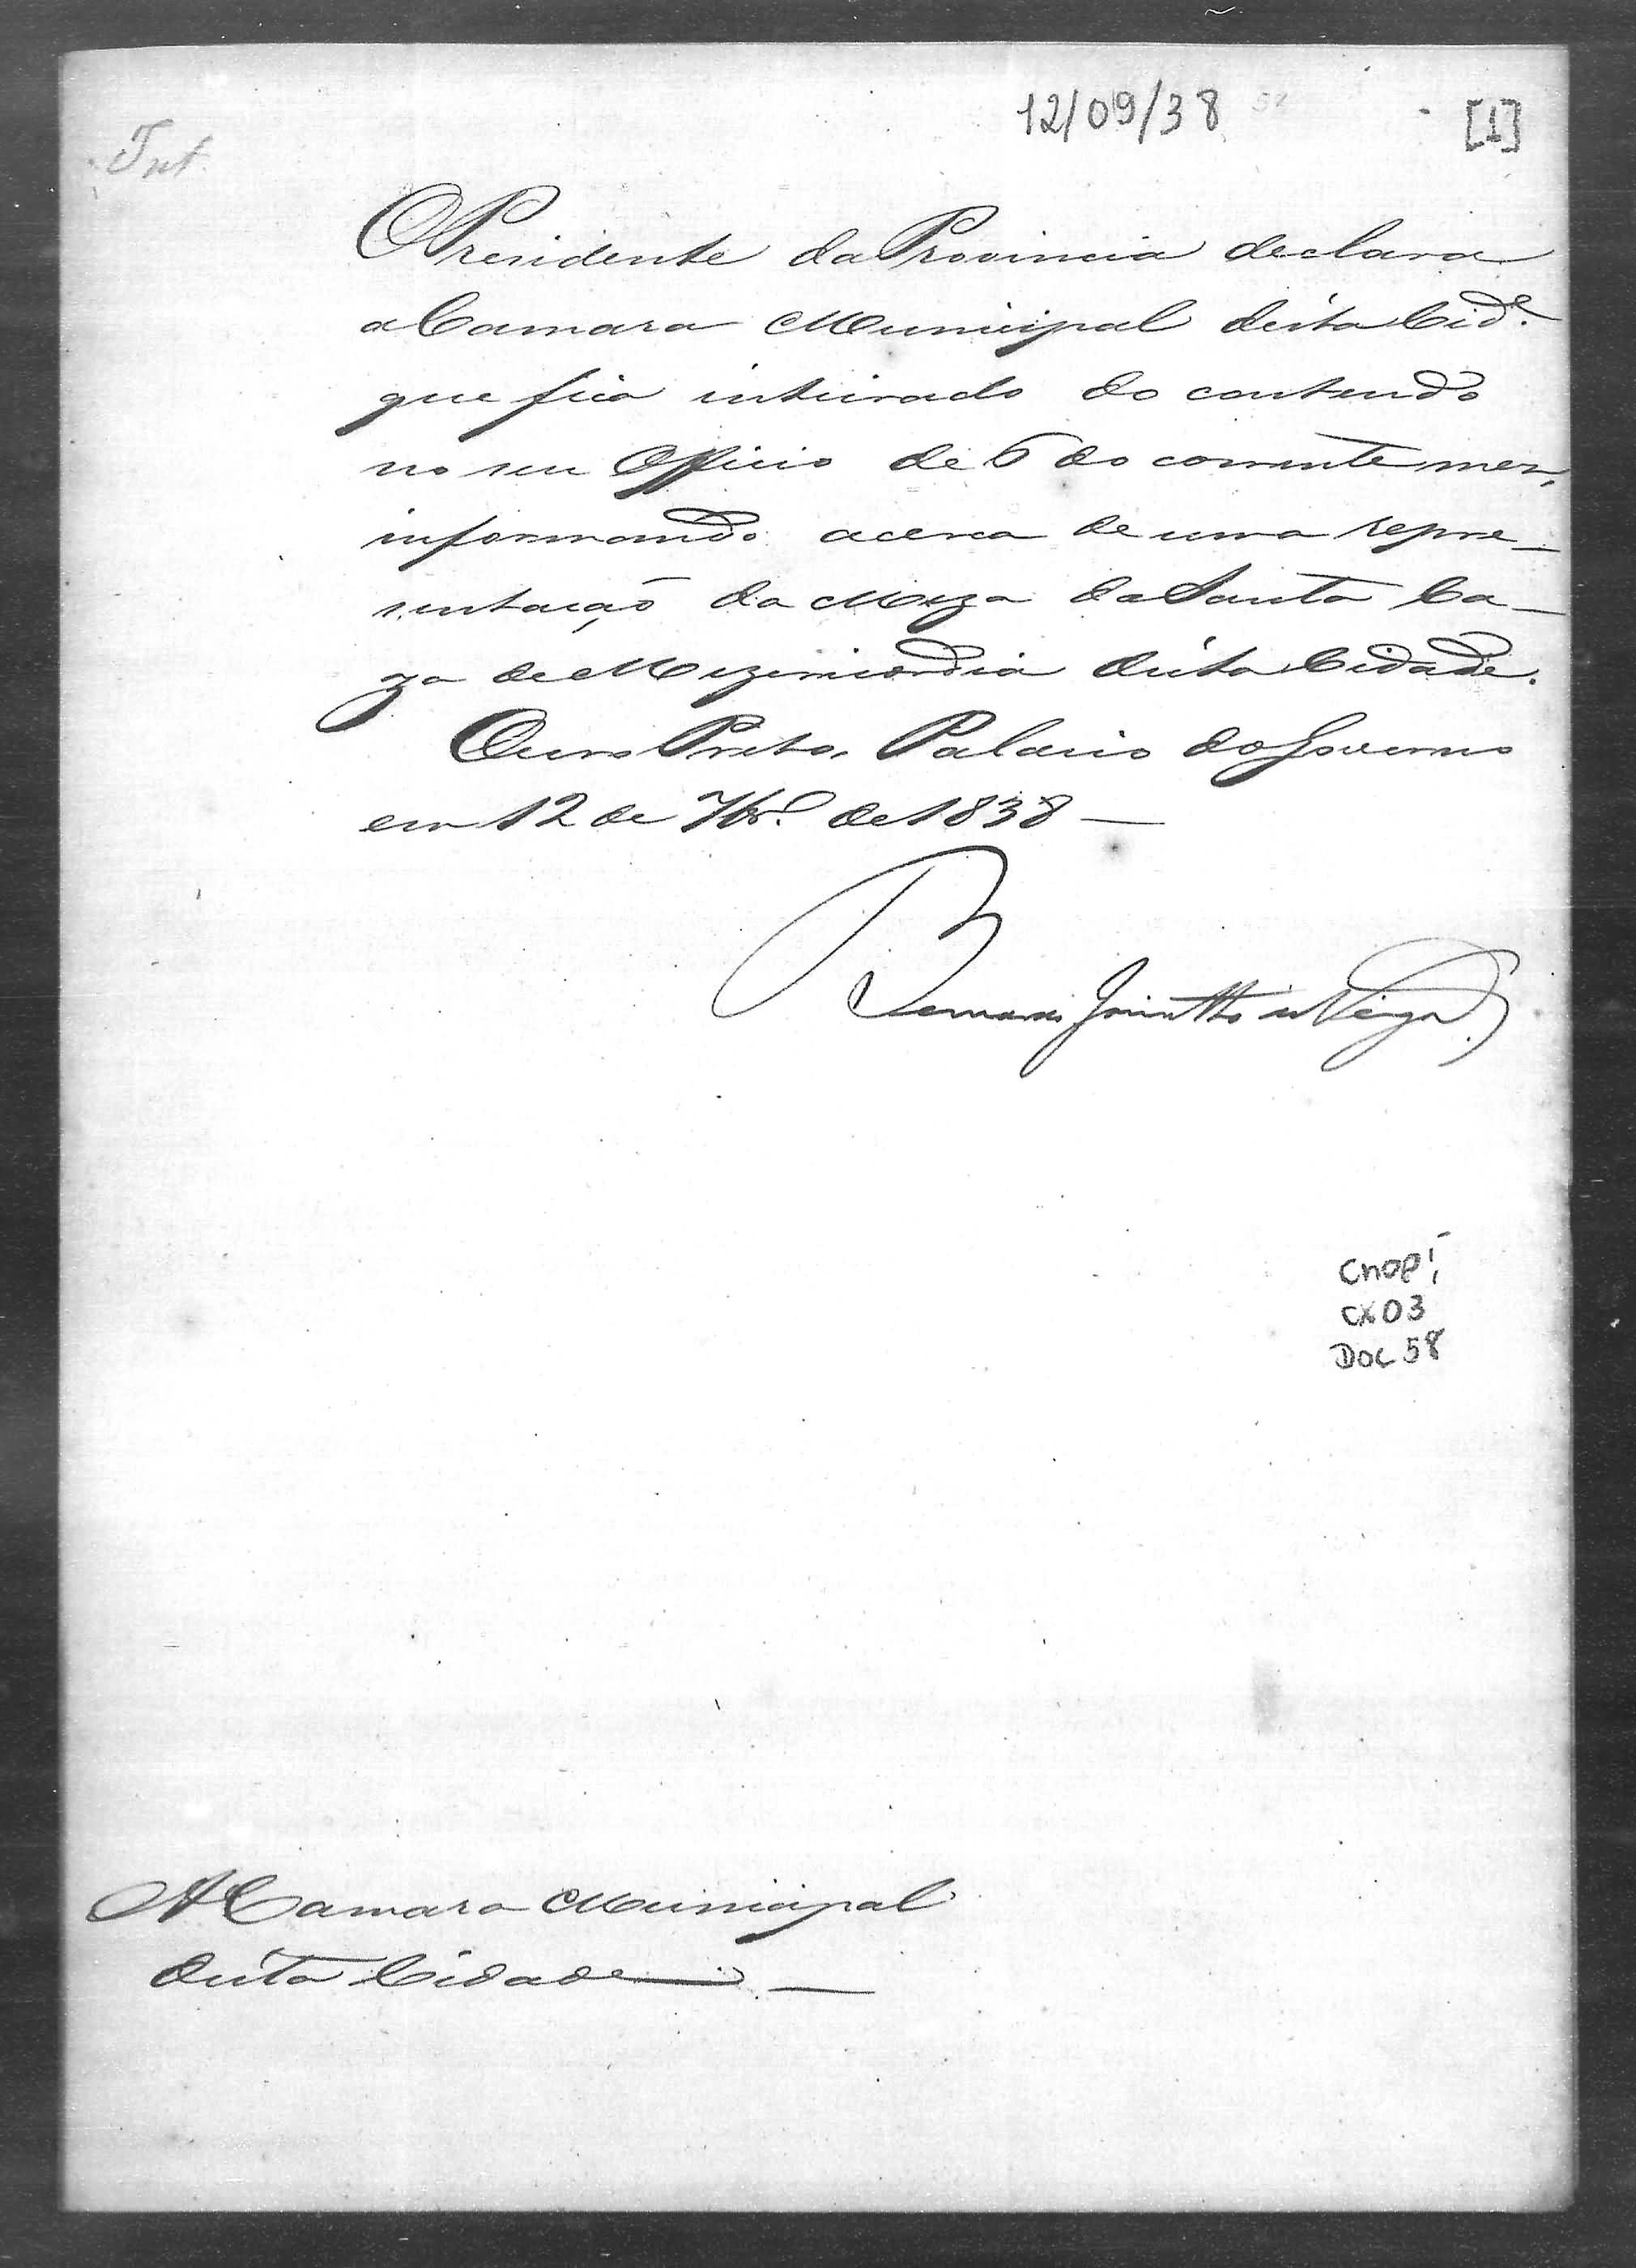 12/09/38
[1]
Int.
O Presidente da Provincia declara
a Camara Municipal desta Cid.e
que fica inteirado do contendo
no seu Officio de 6 do corrente mez,
informando acerca de uma repre_
sentação da Meza da Santa Ca_
za de Mizericordia desta Cidade.
Ouro Preto, Palacio do Governo
em 12 de 7br.o de 1838 —
Bernardo Jacintho da Veiga
CMOP
CX03
Doc 58
A Camara Municipal
desta Cidade —